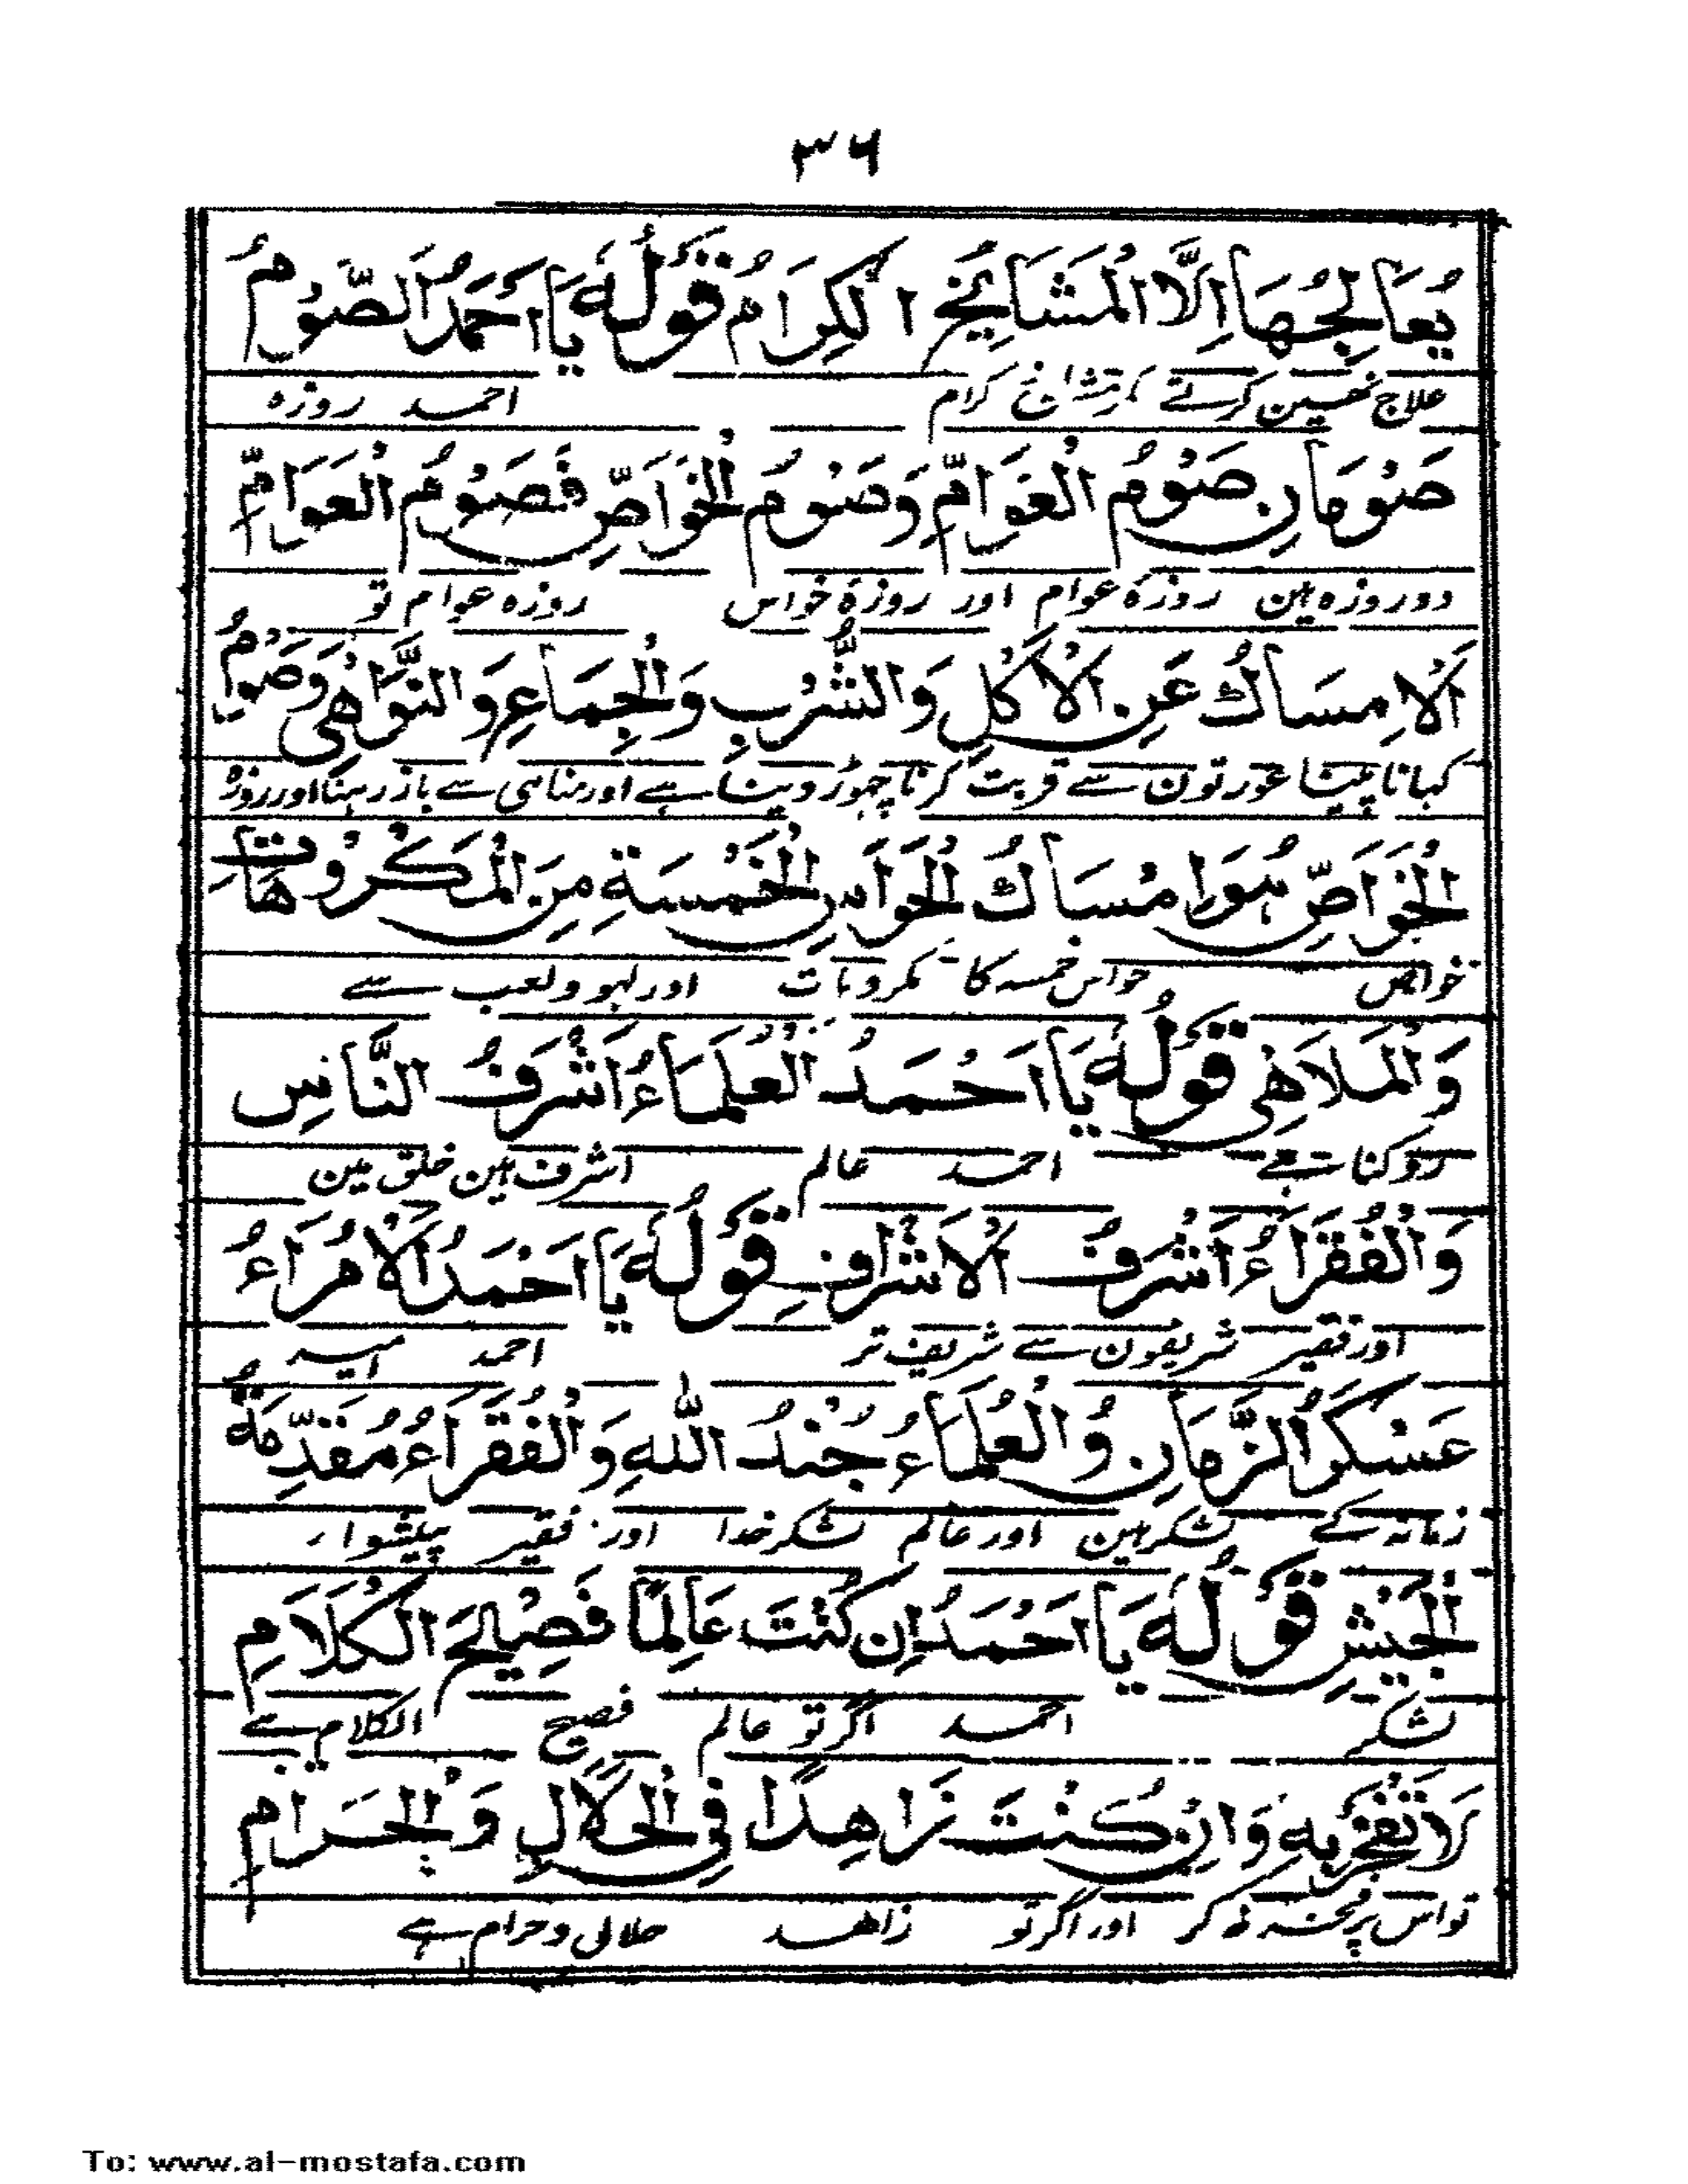 ۳۶
يُعَالِجُهَا اِلَّا الْمَشَايِخُ الْكِرَامُ قَوْلُهُ يَا اَحْمَدُ اَلصَّوْمُ
علاج نهين کرتے مشائخ کرام احمد روزه
صَوْمَانِ صَوْمُ الْعَوَامِّ وَصَوْمُ الْخَوَاصِّ فَصَوْمُ الْعَوَامِّ
دو روزه ہین روزهٔ عوام اور روزهٔ خواص روزه عوام تو
اَلْاِمْسَاكُ عَنِ الْاَكْلِ وَالشُّرْبِ وَالْجِمَاعِ وَالنَّوَاهِي وَصَوْمُ
کہانا پینا عورتون سے قربت کرنا چہوڑ دینا ہے اور مناہی سے باز رہنا اور روزهٔ
الْخَوَاصِّ هُوَ اِمْسَاكُ الْحَوَاسِ الْخَمْسَةِ مِنَ الْمَكْرُوْهَاتِ
خواص حواس خمسه کا مکروہات اور لہو و لعب سے
وَالْمَلَاهِي قَوْلُهُ يَا اَحْمَدُ الْعُلَمَاءُ اَشْرَفُ النَّاسِ
روکنا ہے احمد عالم اشرف ہین خلق مین
وَالْفُقَرَاءُ اَشْرَفُ الْاَشْرَافِ قَوْلُهُ يَا اَحْمَدُ الْاُمَرَاءُ
اور فقیر شریفون سے شریف تر احمد امیر
عَسْكَرُ الزَّمَانِ وَالْعُلَمَاءُ جُنْدُ اللّٰهِ وَالْفُقَرَاءُ مُقَدِّمَةُ
زمانه کے لشکر ہین اور عالم لشکر خدا اور فقیر پیشوا
الْجَيْشِ قَوْلُهُ يَا اَحْمَدُ اِنْ كُنْتَ عَالِمًا فَصِيْحَ الْكَلَامِ
لشکر احمد اگر تو عالم فصیح الکلام ہے
لَا تَفْخَرْ بِهِ وَاِنْ كُنْتَ زَاهِدًا فِي الْحَلَالِ وَالْحَرَامِ
تو اس پر فخر نه کر اور اگر تو زاهد حلال و حرام ہے
To: www.al-mostafa.com